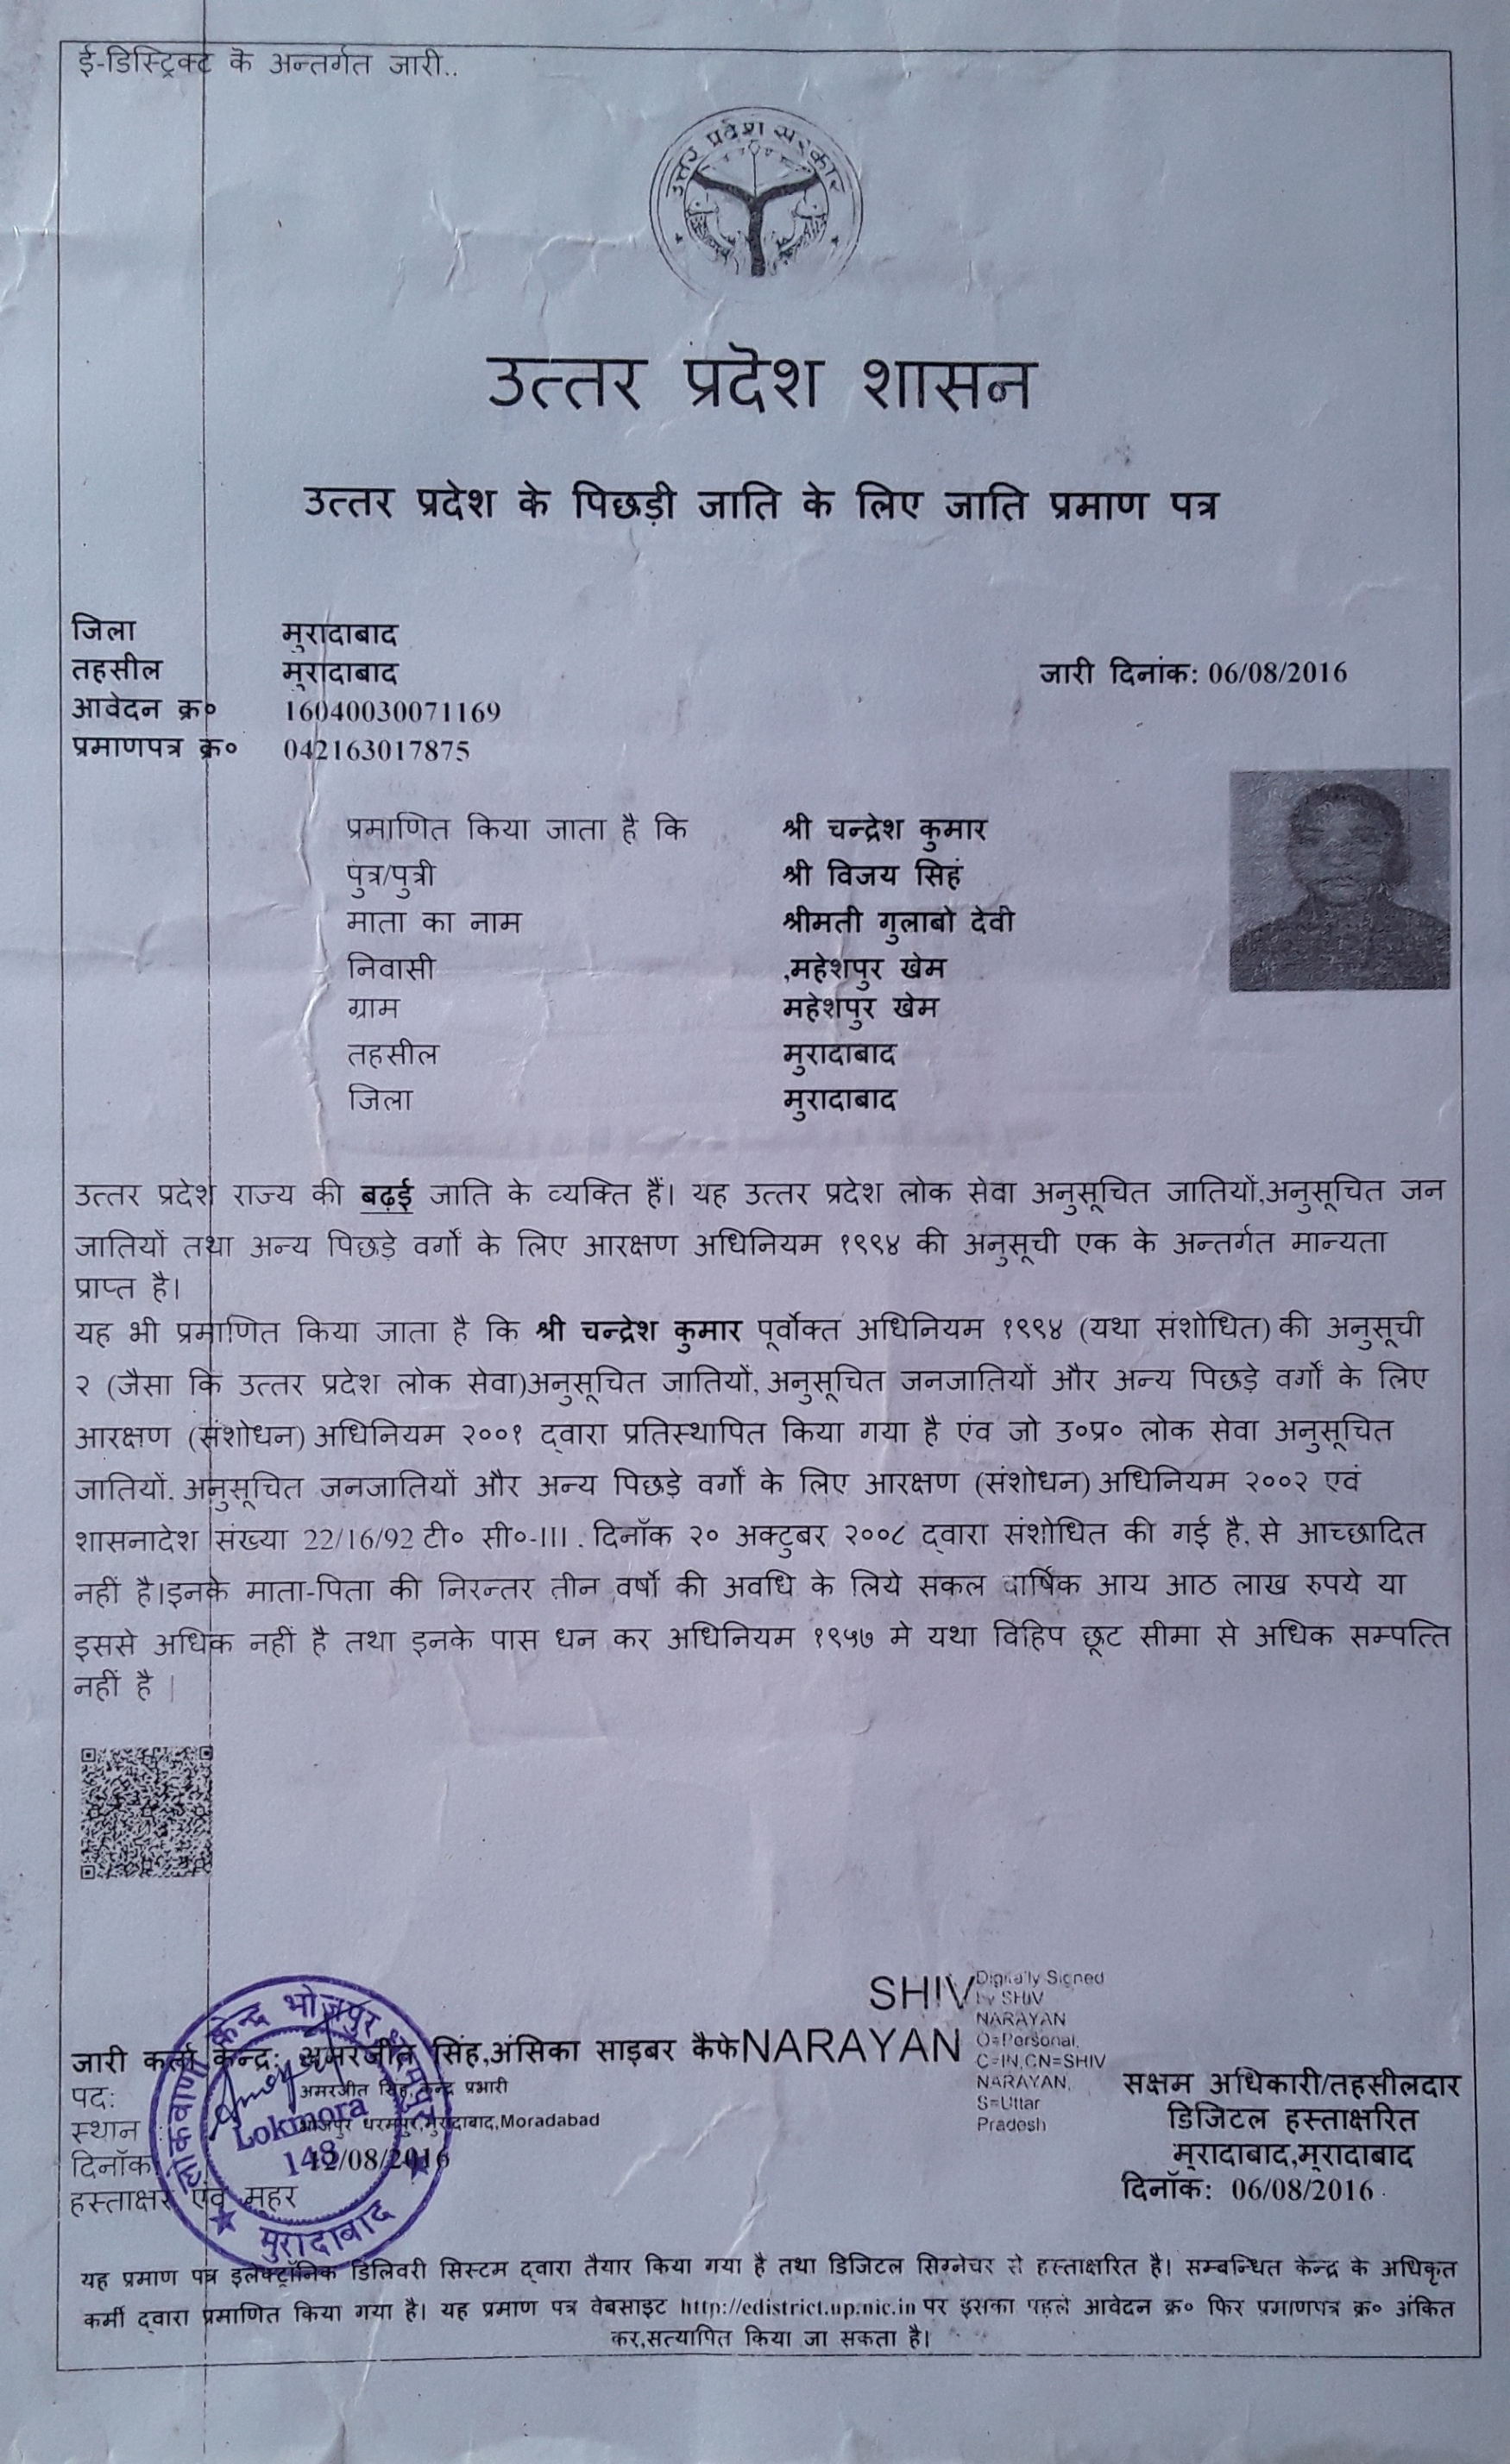 ई-डिस्ट्रिक्ट के अन्तर्गत जारी..
उत्तर प्रदेश सरकार
उत्तर प्रदेश शासन
उत्तर प्रदेश के पिछड़ी जाति के लिए जाति प्रमाण पत्र
जिला मुरादाबाद
तहसील मुरादाबाद जारी दिनांक: 06/08/2016
आवेदन क्र० 16040030071169
प्रमाणपत्र क्र० 042163017875
प्रमाणित किया जाता है कि श्री चन्द्रेश कुमार
पुत्र/पुत्री श्री विजय सिहं
माता का नाम श्रीमती गुलाबो देवी
निवासी ,महेशपुर खेम
ग्राम महेशपुर खेम
तहसील मुरादाबाद
जिला मुरादाबाद
उत्तर प्रदेश राज्य की बढ़ई जाति के व्यक्ति हैं। यह उत्तर प्रदेश लोक सेवा अनुसूचित जातियों,अनुसूचित जन
जातियों तथा अन्य पिछड़े वर्गो के लिए आरक्षण अधिनियम १९९४ की अनुसूची एक के अन्तर्गत मान्यता
प्राप्त है।
यह भी प्रमाणित किया जाता है कि श्री चन्द्रेश कुमार पूर्वोक्त अधिनियम १९९४ (यथा संशोधित) की अनुसूची
२ (जैसा कि उत्तर प्रदेश लोक सेवा)अनुसूचित जातियों, अनुसूचित जनजातियों और अन्य पिछड़े वर्गों के लिए
आरक्षण (संशोधन) अधिनियम २००१ द्वारा प्रतिस्थापित किया गया है एंव जो उ०प्र० लोक सेवा अनुसूचित
जातियों. अनुसूचित जनजातियों और अन्य पिछड़े वर्गों के लिए आरक्षण (संशोधन) अधिनियम २००२ एवं
शासनादेश संख्या 22/16/92 टी० सी०-III . दिनॉक २० अक्टुबर २००८ द्वारा संशोधित की गई है, से आच्छादित
नहीं है।इनके माता-पिता की निरन्तर तीन वर्षो की अवधि के लिये सकल वार्षिक आय आठ लाख रुपये या
इससे अधिक नहीं है तथा इनके पास धन कर अधिनियम १९५७ मे यथा विहिप छूट सीमा से अधिक सम्पत्ति
नहीं है |
SHIV
NARAYAN
Digitally Signed
by SHIV
NARAYAN
O=Personal,
C=IN,CN=SHIV
NARAYAN,
S=Uttar
Pradesh
जारी कर्ता केन्द्र: अमरजीत सिंह,अंसिका साइबर कैफे
पद: अमरजीत सिंह,केन्द्र प्रभारी
स्थान : भोजपुर धरमपुर,मुरादाबाद,Moradabad
दिनॉक: 12/08/2016
हस्ताक्षर एंव मुहर
केन्द्र भोजपुर
Lokmora
148
मुरादाबाद
सक्षम अधिकारी/तहसीलदार
डिजिटल हस्ताक्षरित
मुरादाबाद,मुरादाबाद
दिनॉक: 06/08/2016
यह प्रमाण पत्र इलेक्ट्रॉनिक डिलिवरी सिस्टम द्वारा तैयार किया गया है तथा डिजिटल सिग्नेचर से हस्ताक्षरित है। सम्बन्धित केन्द्र के अधिकृत
कर्मी द्वारा प्रमाणित किया गया है। यह प्रमाण पत्र वेबसाइट http://edistrict.up.nic.in पर इसका पहले आवेदन क्र० फिर प्रमाणपत्र क्र० अंकित
कर,सत्यापित किया जा सकता है।